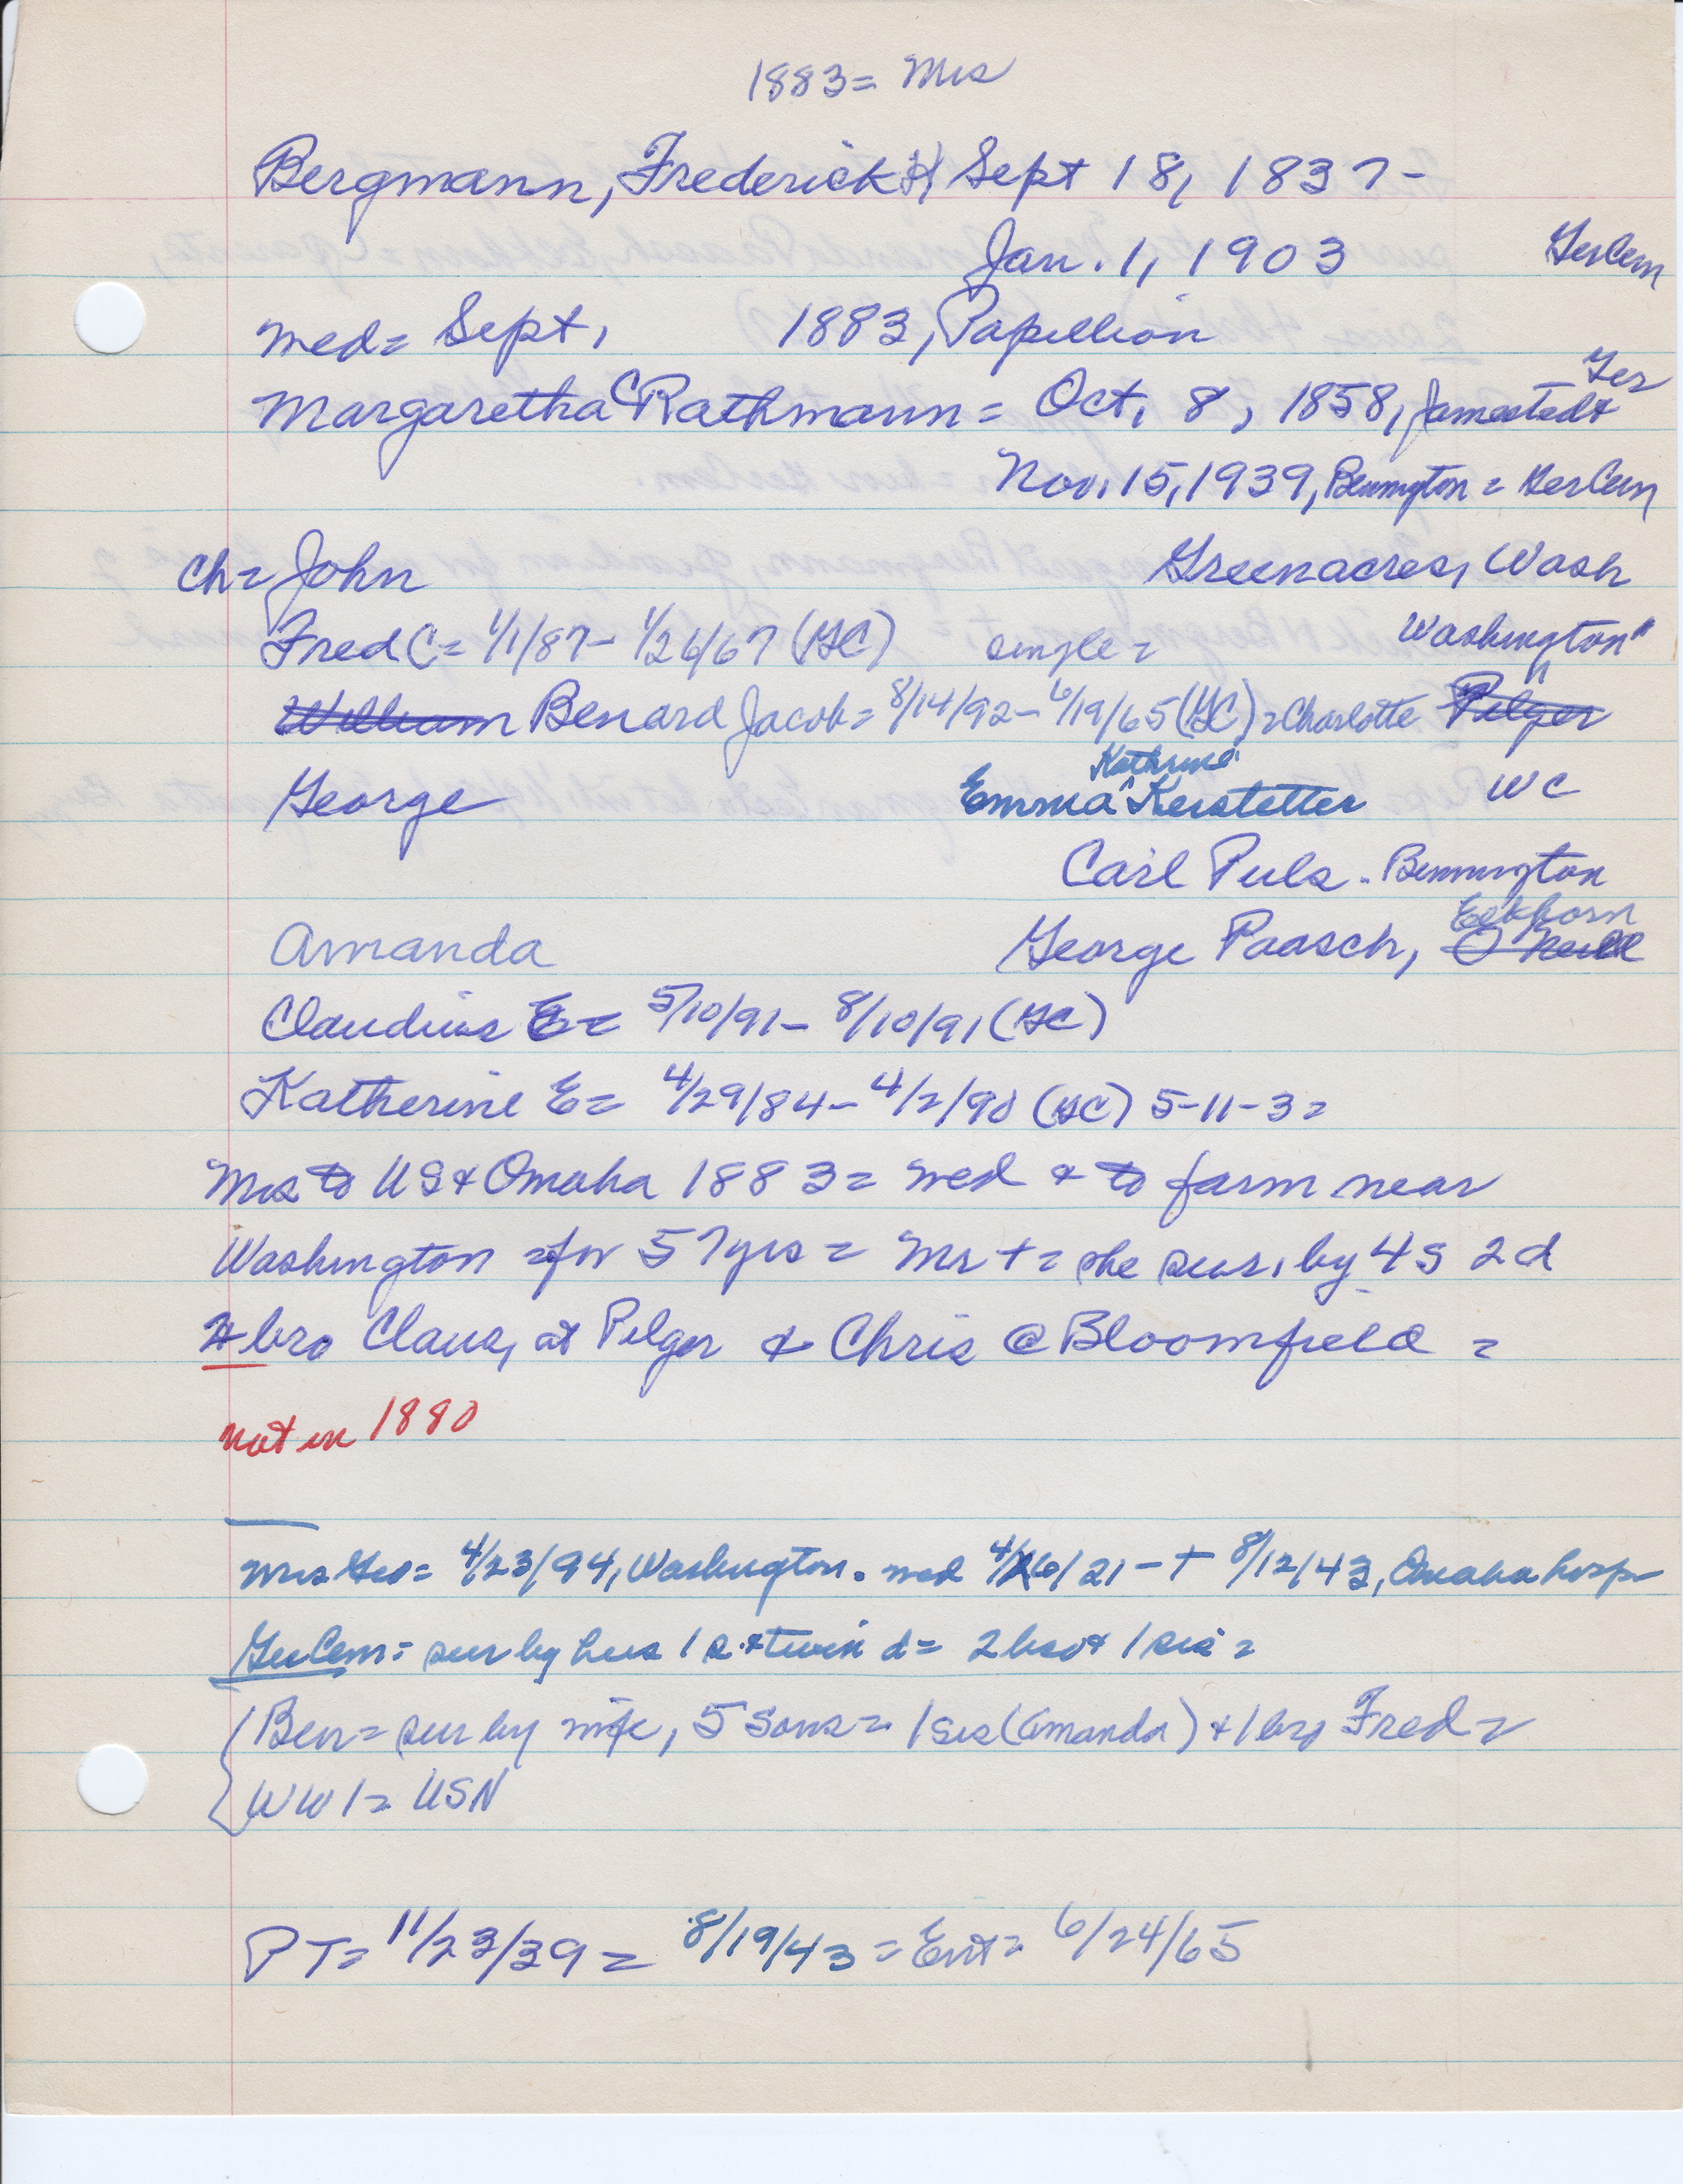 1883= Mrs
Bergmann, Frederick H Sept 18, 1837-
Jan. 1, 1903 GerCem
wed= Sept, 1883, Papillion
Ger
Margaretha C Rathmann = Oct, 8, 1858, Jamestedt
Nov. 15, 1939, Bennington = GerCem
Ch= John Greenacres, Wash
Fred C= 1/1/87- 1/26/67 (GC) single = Washington"
William Benard Jacob= 8/14/92- 6/19/65 (GC) = Charlotte Pilger "
Kathrine
George Emma ^ Kerstetter WC
Carl Puls - Bennington
Elkhorn
Amanda George Paasch, O'Neill
Claudius E= 5/10/91- 8/10/91 (GC)
Katherine E= 4/29/84- 4/2/90 (GC) 5-11-3=
Mrs to US & Omaha 1883= wed & to farm near
Washington =for 57yrs = Mr += she sur. by 4s 2d
bro Claus, at Pilger & Chris @ Bloomfield =
not in 1880
Mrs Geo= 4/23/94, Washington. wed 4/26/21 - + 8/12/43, Omaha hosp
GerCem= sur by hus 1 s. & twin d= 2 bro & 1 sis =
Ben= sur by wife, 5 sons= 1 sis (Amanda) + 1 bro Fred=
WW1= USN
PT= 11/23/39 = 8/19/43 = Ent= 6/24/65